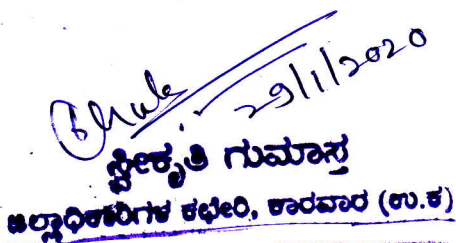 29/1/2020
ಸ್ವೀಕೃತಿ ಗುಮಾಸ್ತ
ಜಿಲ್ಲಾಧಿಕಾರಿಗಳ ಕಛೇರಿ, ಕಾರವಾರ (ಉ.ಕ)